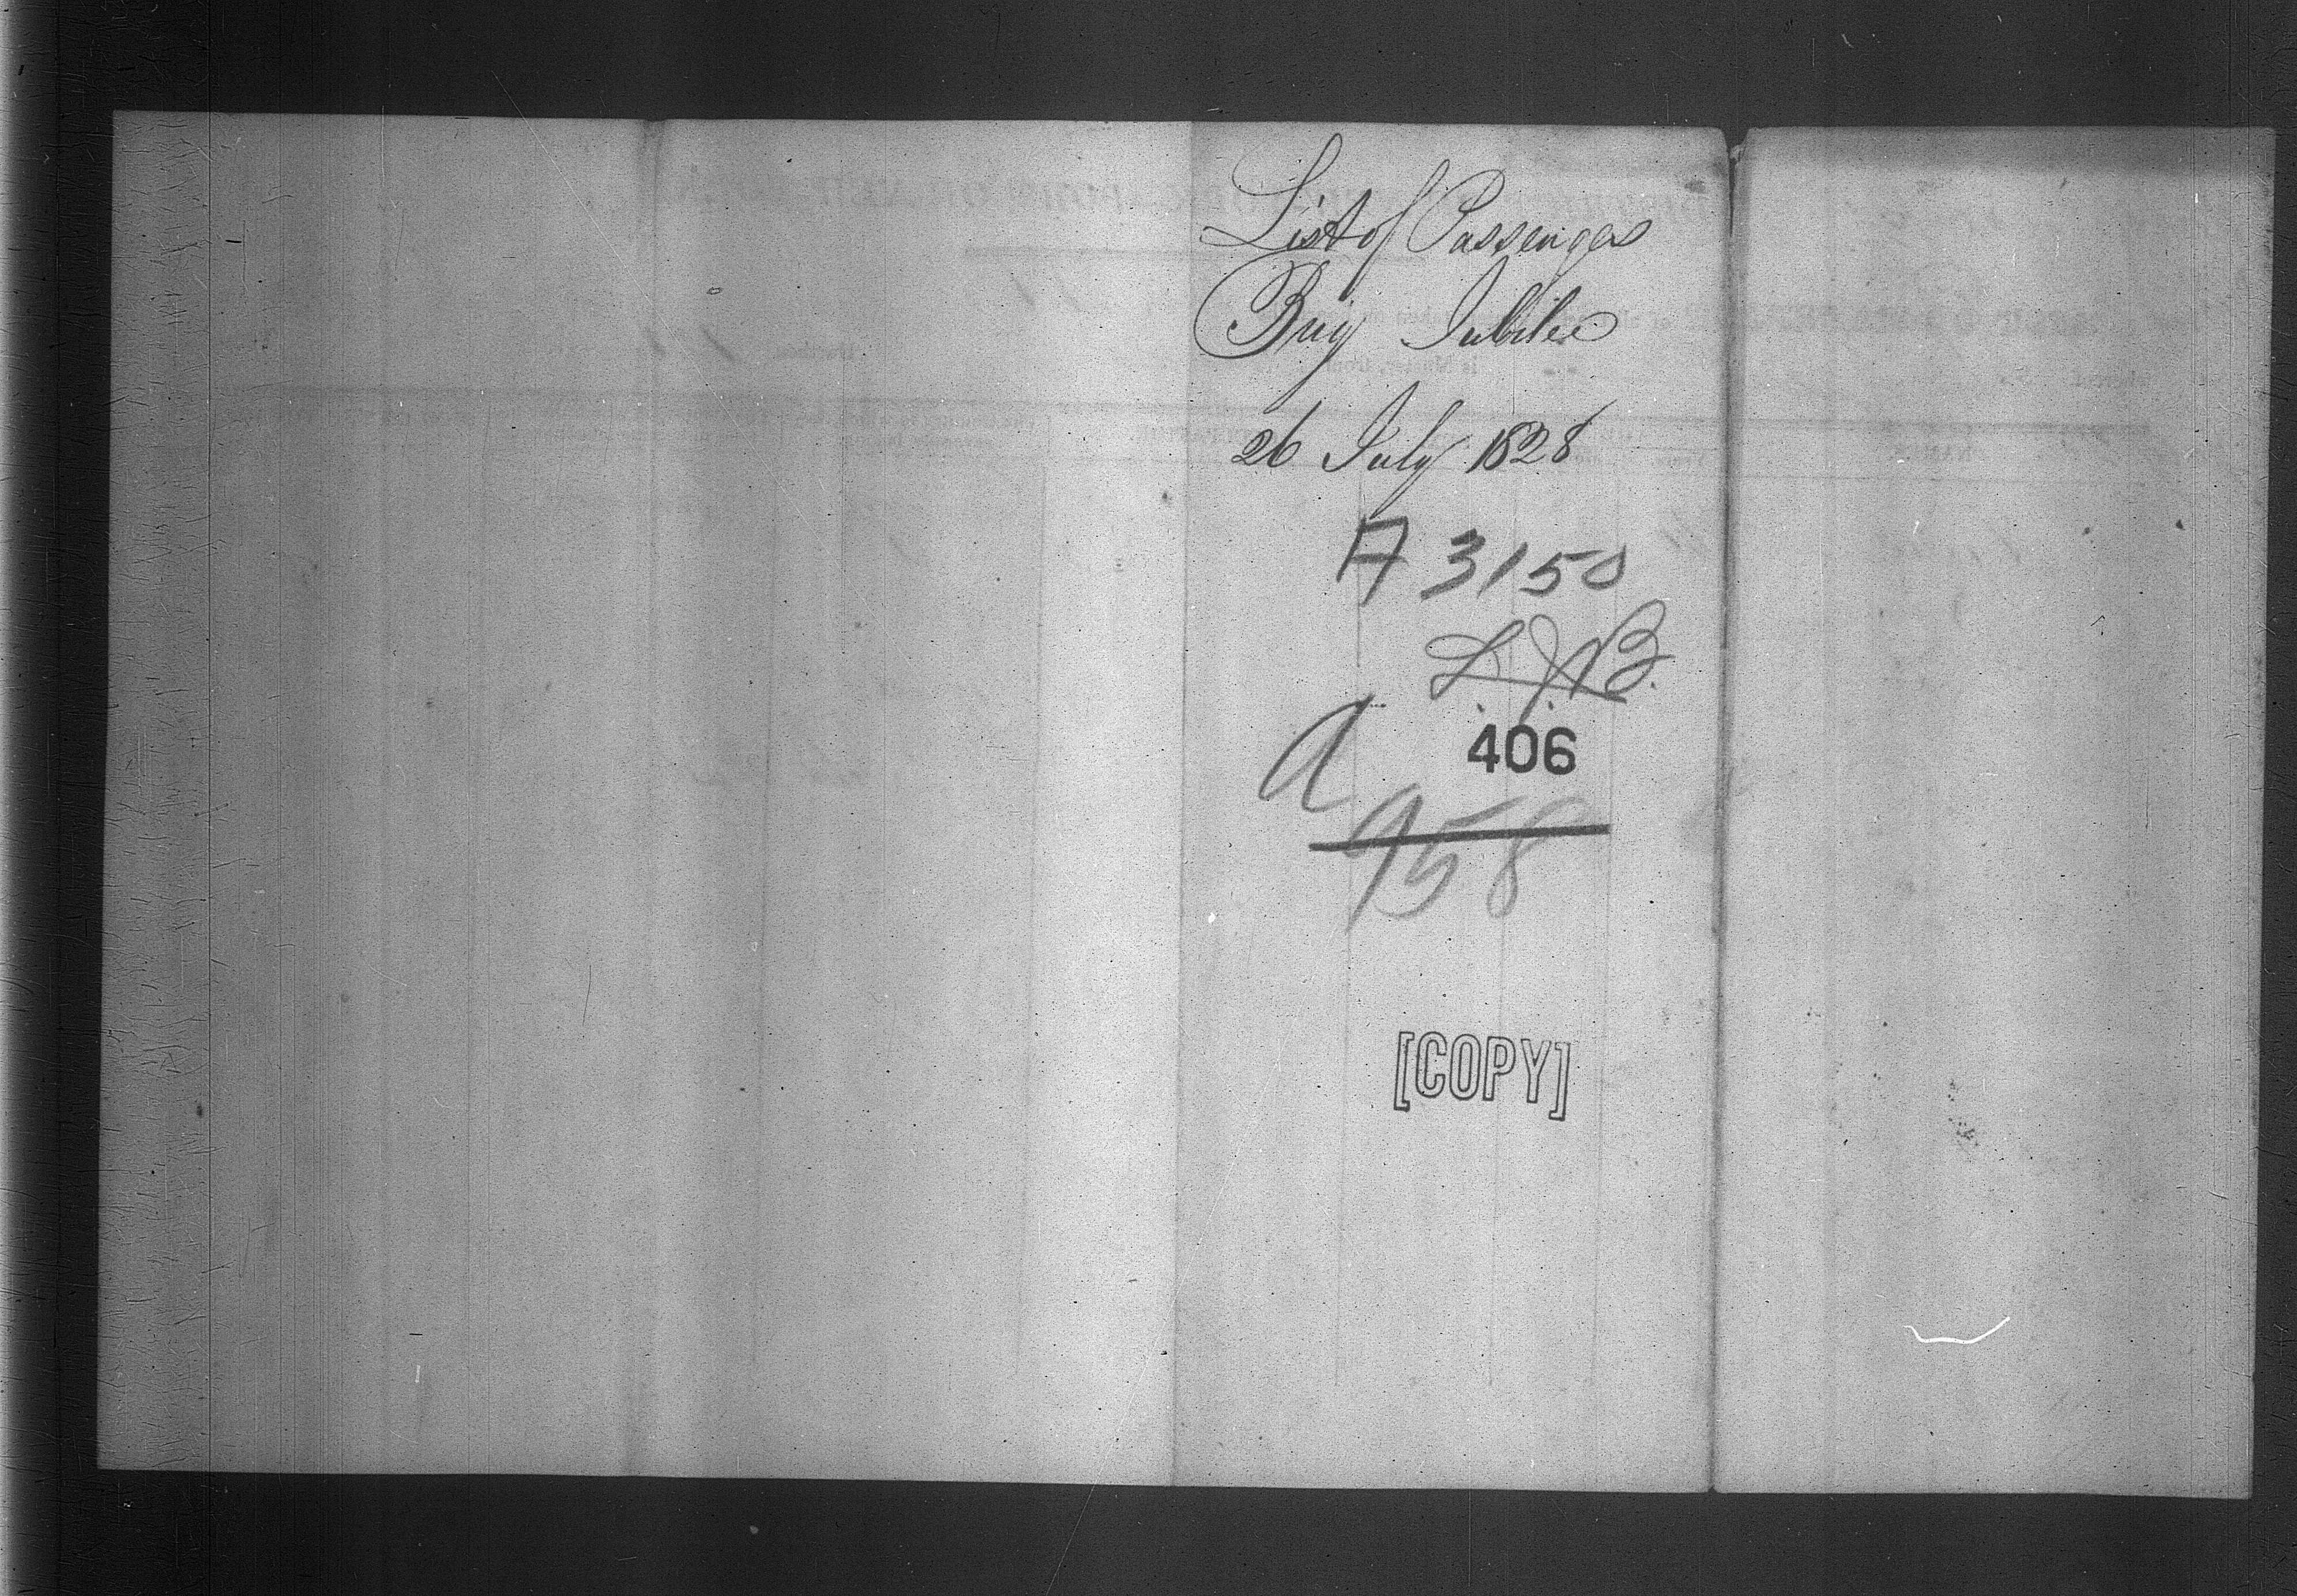 List of Passengers
Brig Jubilee
26 July 1828
A 3150
L.J.B.
A
406
958
[COPY]